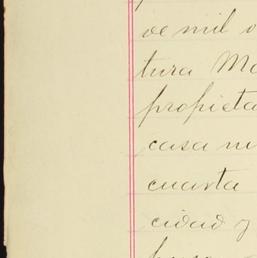 de mil o
tura Ma
propieta
casa nu
cuarta
cidad y